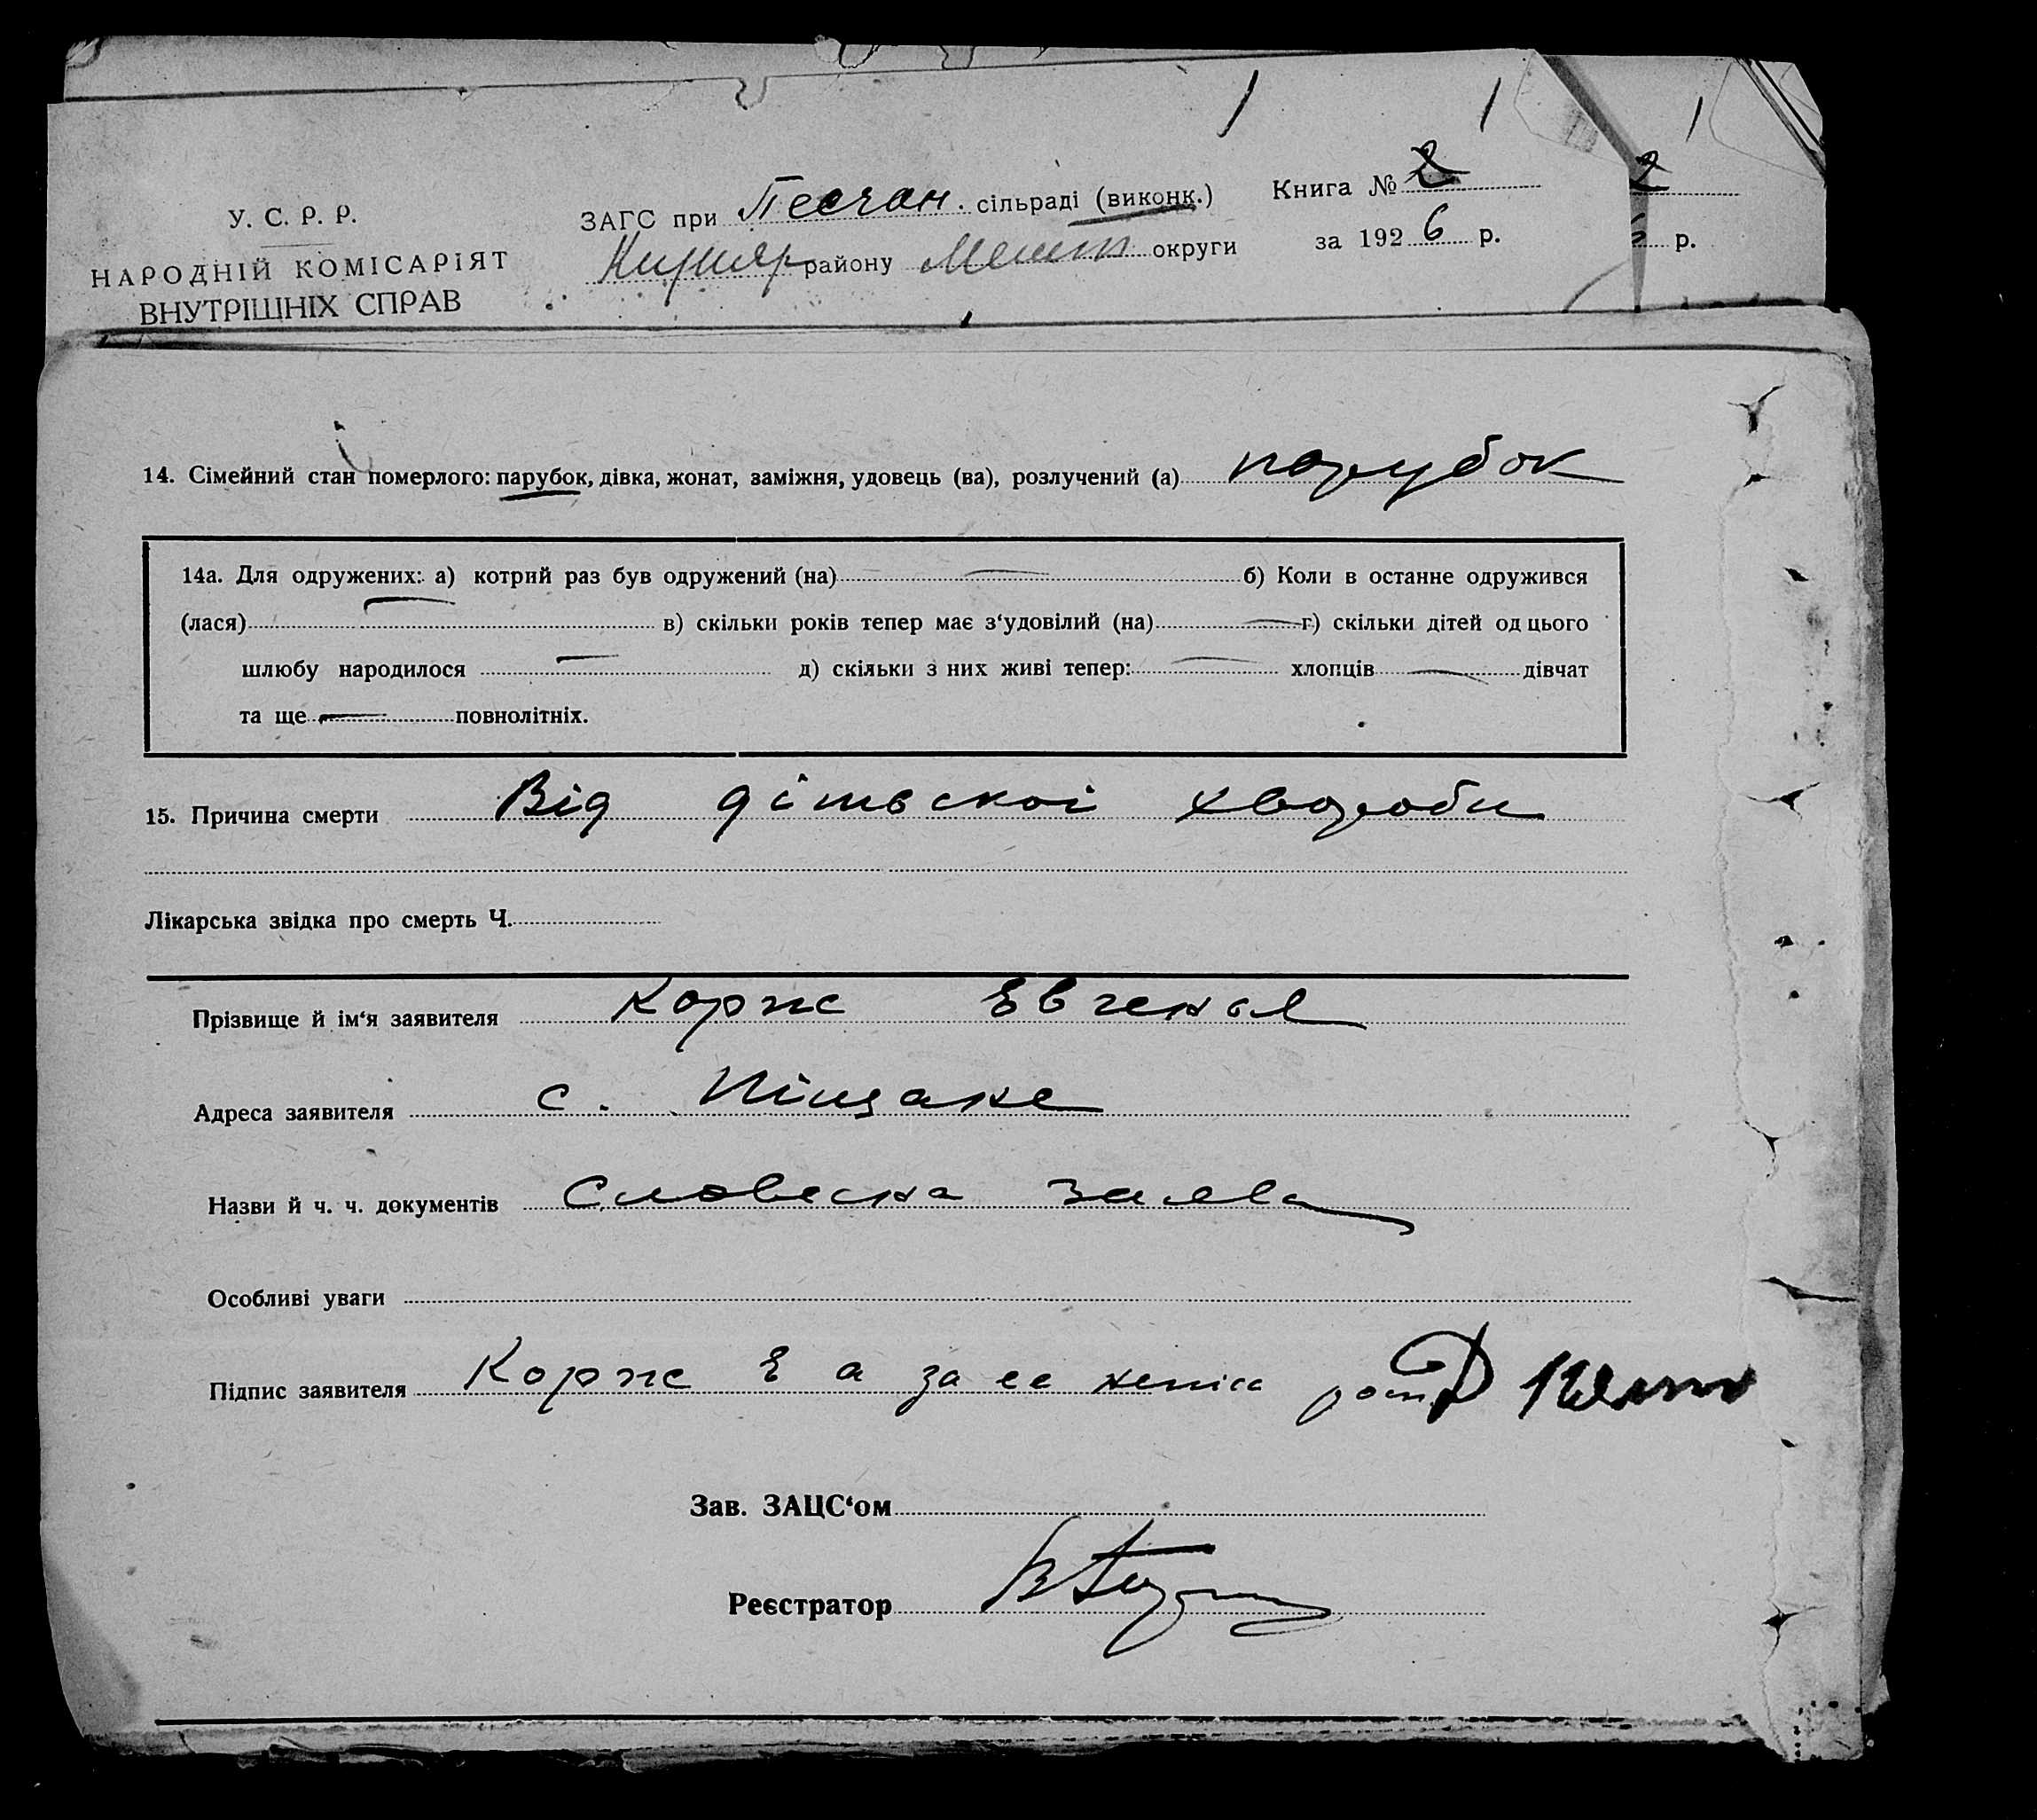 У. С. Р. Р.
НАРОДНІЙ КОМІСАРІЯТ
ВНУТРІШНІХ СПРАВ
ЗАГС при Песчан. сільраді (виконк.)
району Меліт округи
Книга № 2
за 1926 р.
2
6 р.
14. Сімейний стан померлого: парубок, дівка, жонат, заміжня, удовець (ва), розлучений (а) парубок
14а. Для одружених: а) котрий раз був одружений (на) — б) Коли в останне одружився
(лася) — в) скільки років тепер має з‘удовілий (на) — г) скільки дітей од цього
шлюбу народилося — д) скільки з них живі тепер: — хлопців — дівчат
та ще — повнолітніх.
15. Причина смерти Від дітьскої хвороби
Лікарська звідка про смерть Ч.
Прізвище й ім‘я заявителя Корж Евгенья
Адреса заявителя с. Піщане
Назви й ч. ч. документів Словесна заява
Особливі уваги
Підпис заявителя Корж Е а за ее непис рост
Зав. ЗАЦС‘ом
Реєстратор